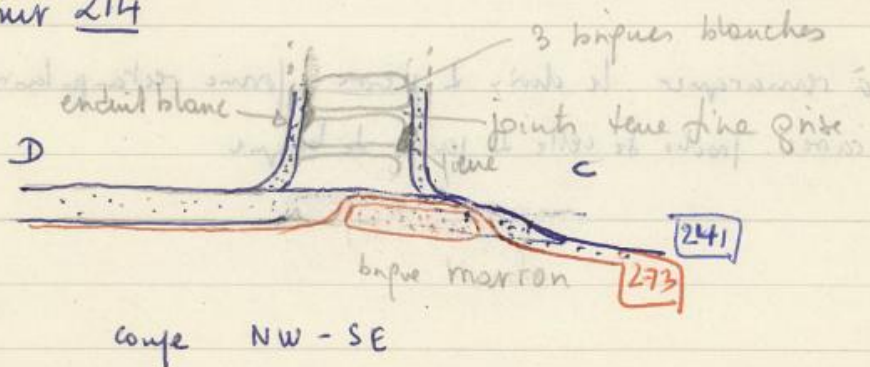 mur 214
3 briques blanches
enduit blanc
joints terre fine grise
pierre
D
C
241
brique marron
273
coupe NW - SE